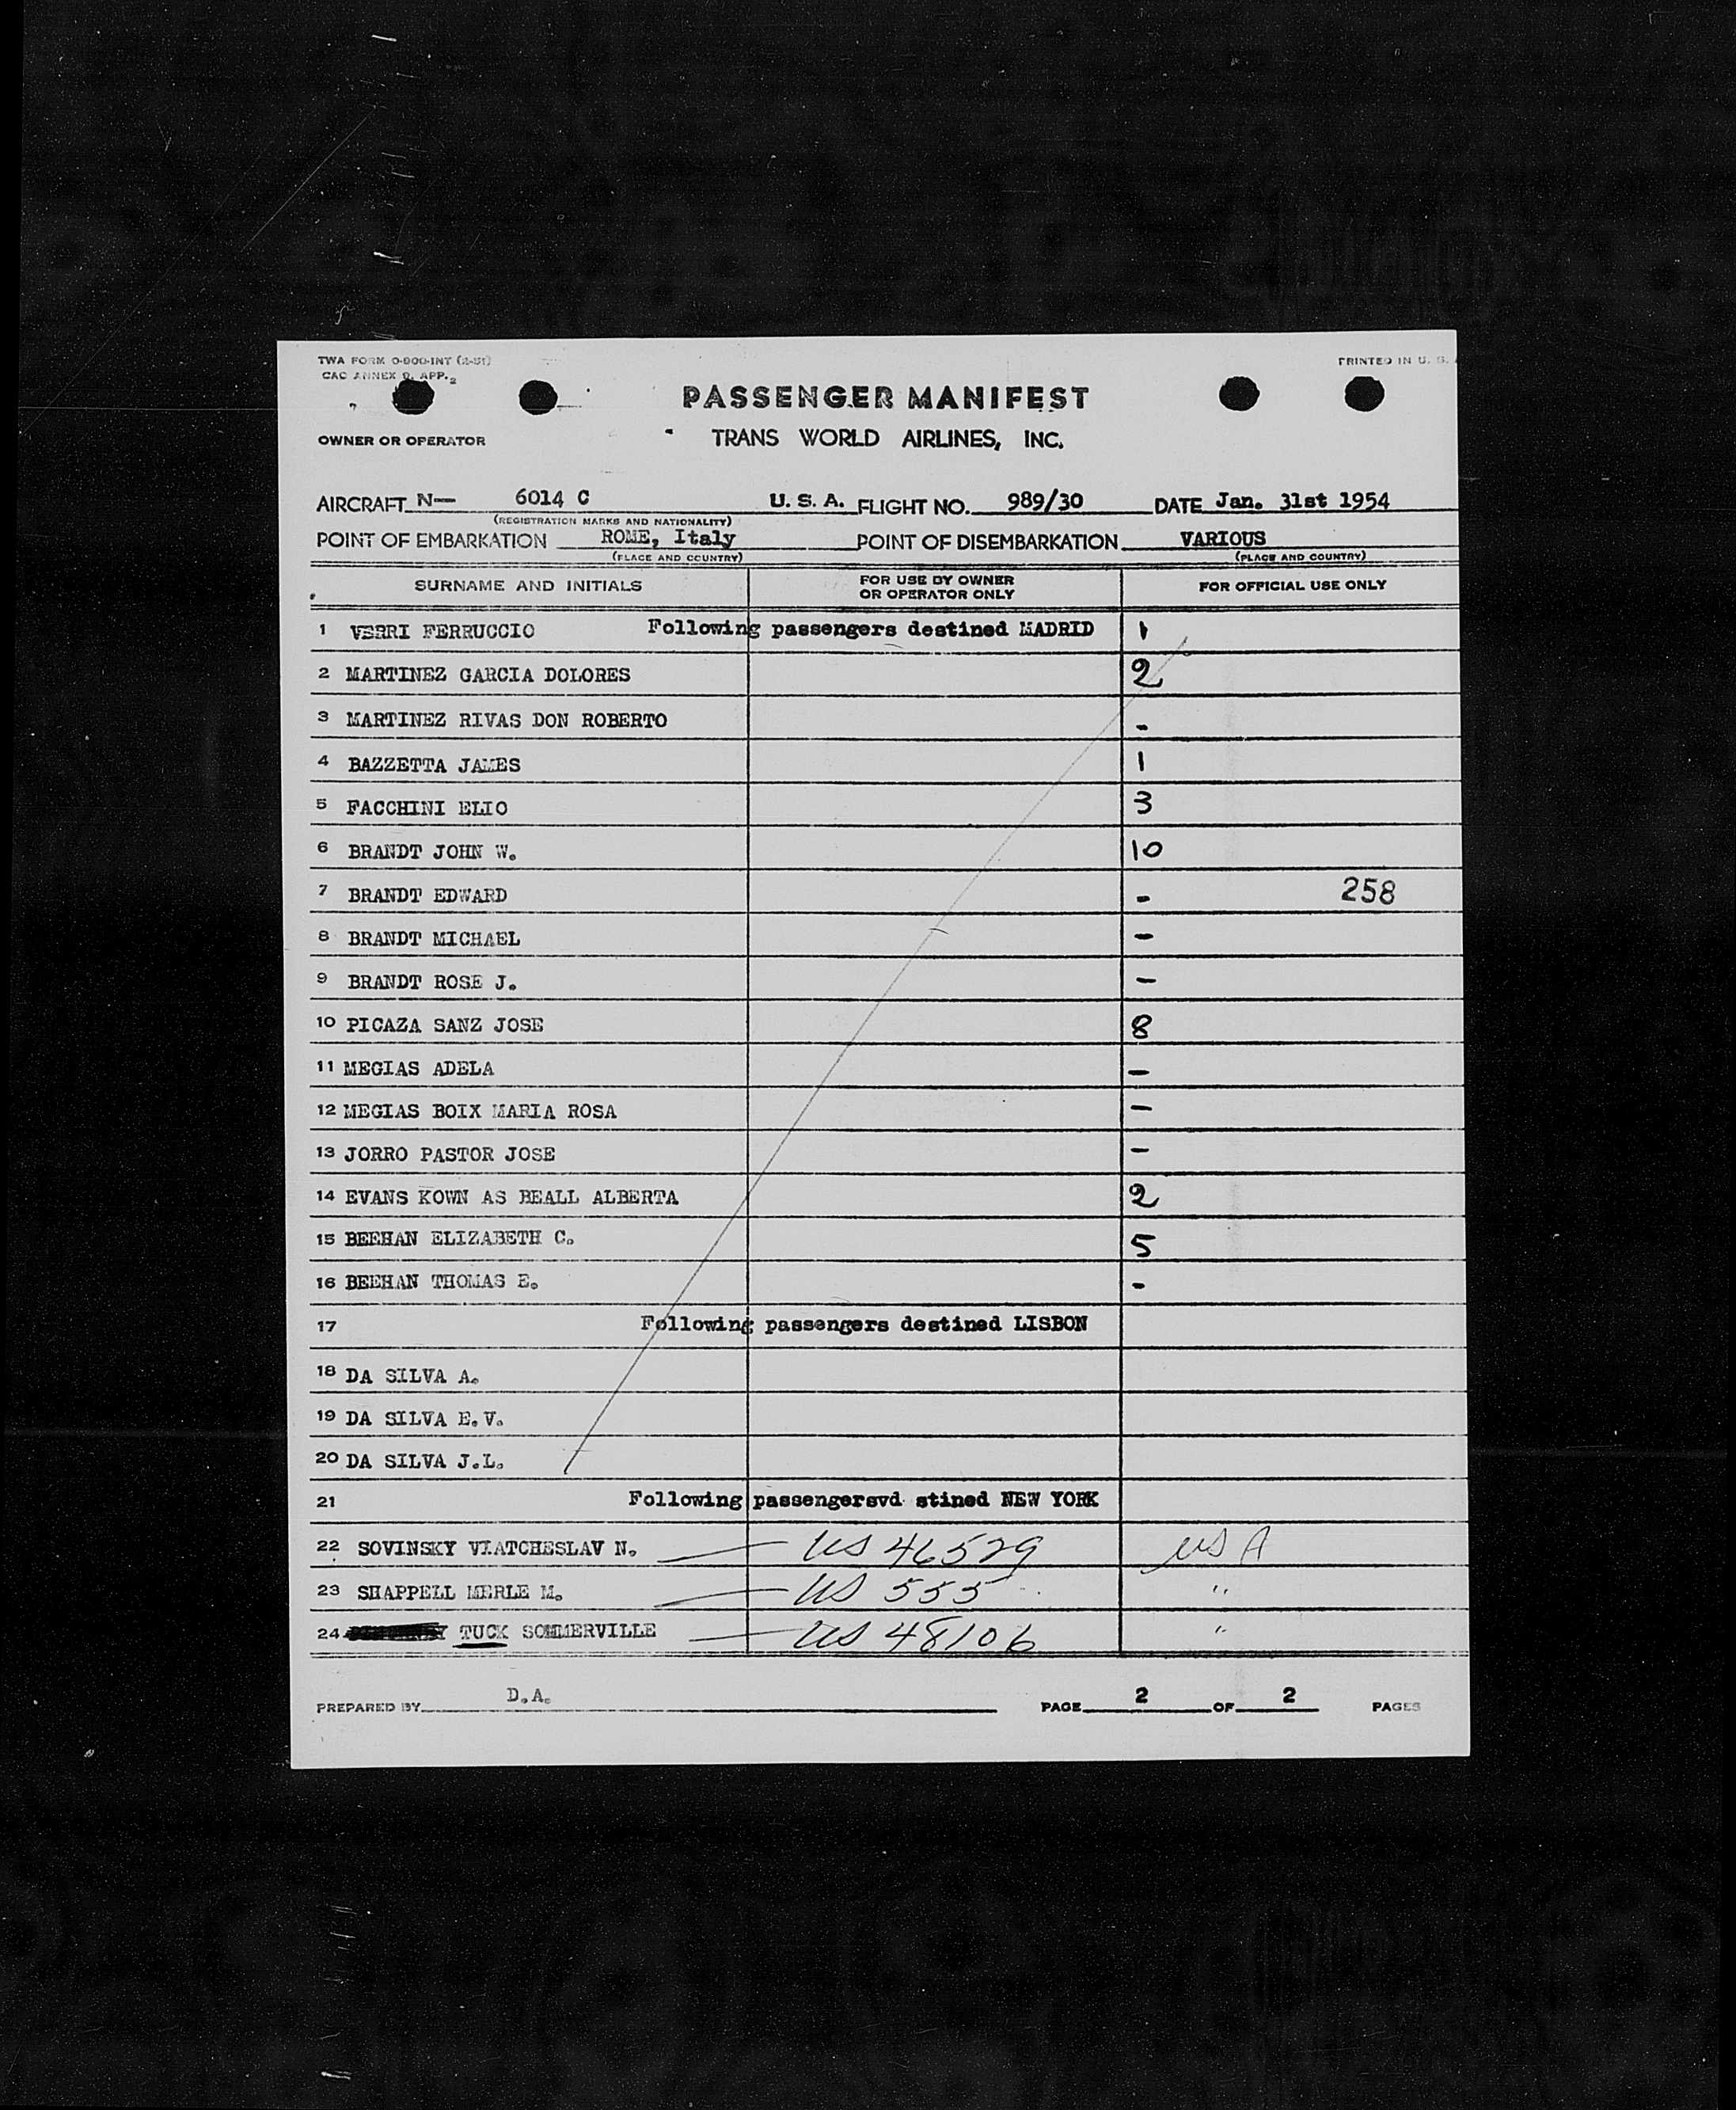 TWA FORM O-900-INT (2-51)
PRINTED IN U. S.
CAC ANNEX 9, APP. 2
PASSENGER MANIFEST
OWNER OR OPERATOR TRANS WORLD AIRLINES, INC.
AIRCRAFT N— 6014 C U. S. A. FLIGHT NO. 989/30 DATE Jan. 31st 1954
(REGISTRATION MARKS AND NATIONALITY)
POINT OF EMBARKATION ROME, Italy POINT OF DISEMBARKATION VARIOUS
(PLACE AND COUNTRY) (PLACE AND COUNTRY)
SURNAME AND INITIALS FOR USE BY OWNER OR OPERATOR ONLY FOR OFFICIAL USE ONLY
1 VERRI FERRUCCIO Following passengers destined MADRID 1
2 MARTINEZ GARCIA DOLORES 2
3 MARTINEZ RIVAS DON ROBERTO -
4 BAZZETTA JAMES 1
5 FACCHINI ELIO 3
6 BRANDT JOHN W. 10
7 BRANDT EDWARD - 258
8 BRANDT MICHAEL -
9 BRANDT ROSE J. -
10 PICAZA SANZ JOSE 8
11 MEGIAS ADELA -
12 MEGIAS BOIX MARIA ROSA -
13 JORRO PASTOR JOSE -
14 EVANS KOWN AS BEALL ALBERTA 2
15 BEEHAN ELIZABETH C. 5
16 BEEHAN THOMAS E. -
17 Following passengers destined LISBON
18 DA SILVA A.
19 DA SILVA E.V.
20 DA SILVA J.L.
21 Following passengersvd stined NEW YORK
22 SOVINSKY VIATCHESLAV N. — US 46529 USA
23 SHAPPELL MERLE M. — US 555 "
24 TUCK SOMMERVILLE — US 48106 "
PREPARED BY D.A. PAGE 2 OF 2 PAGES